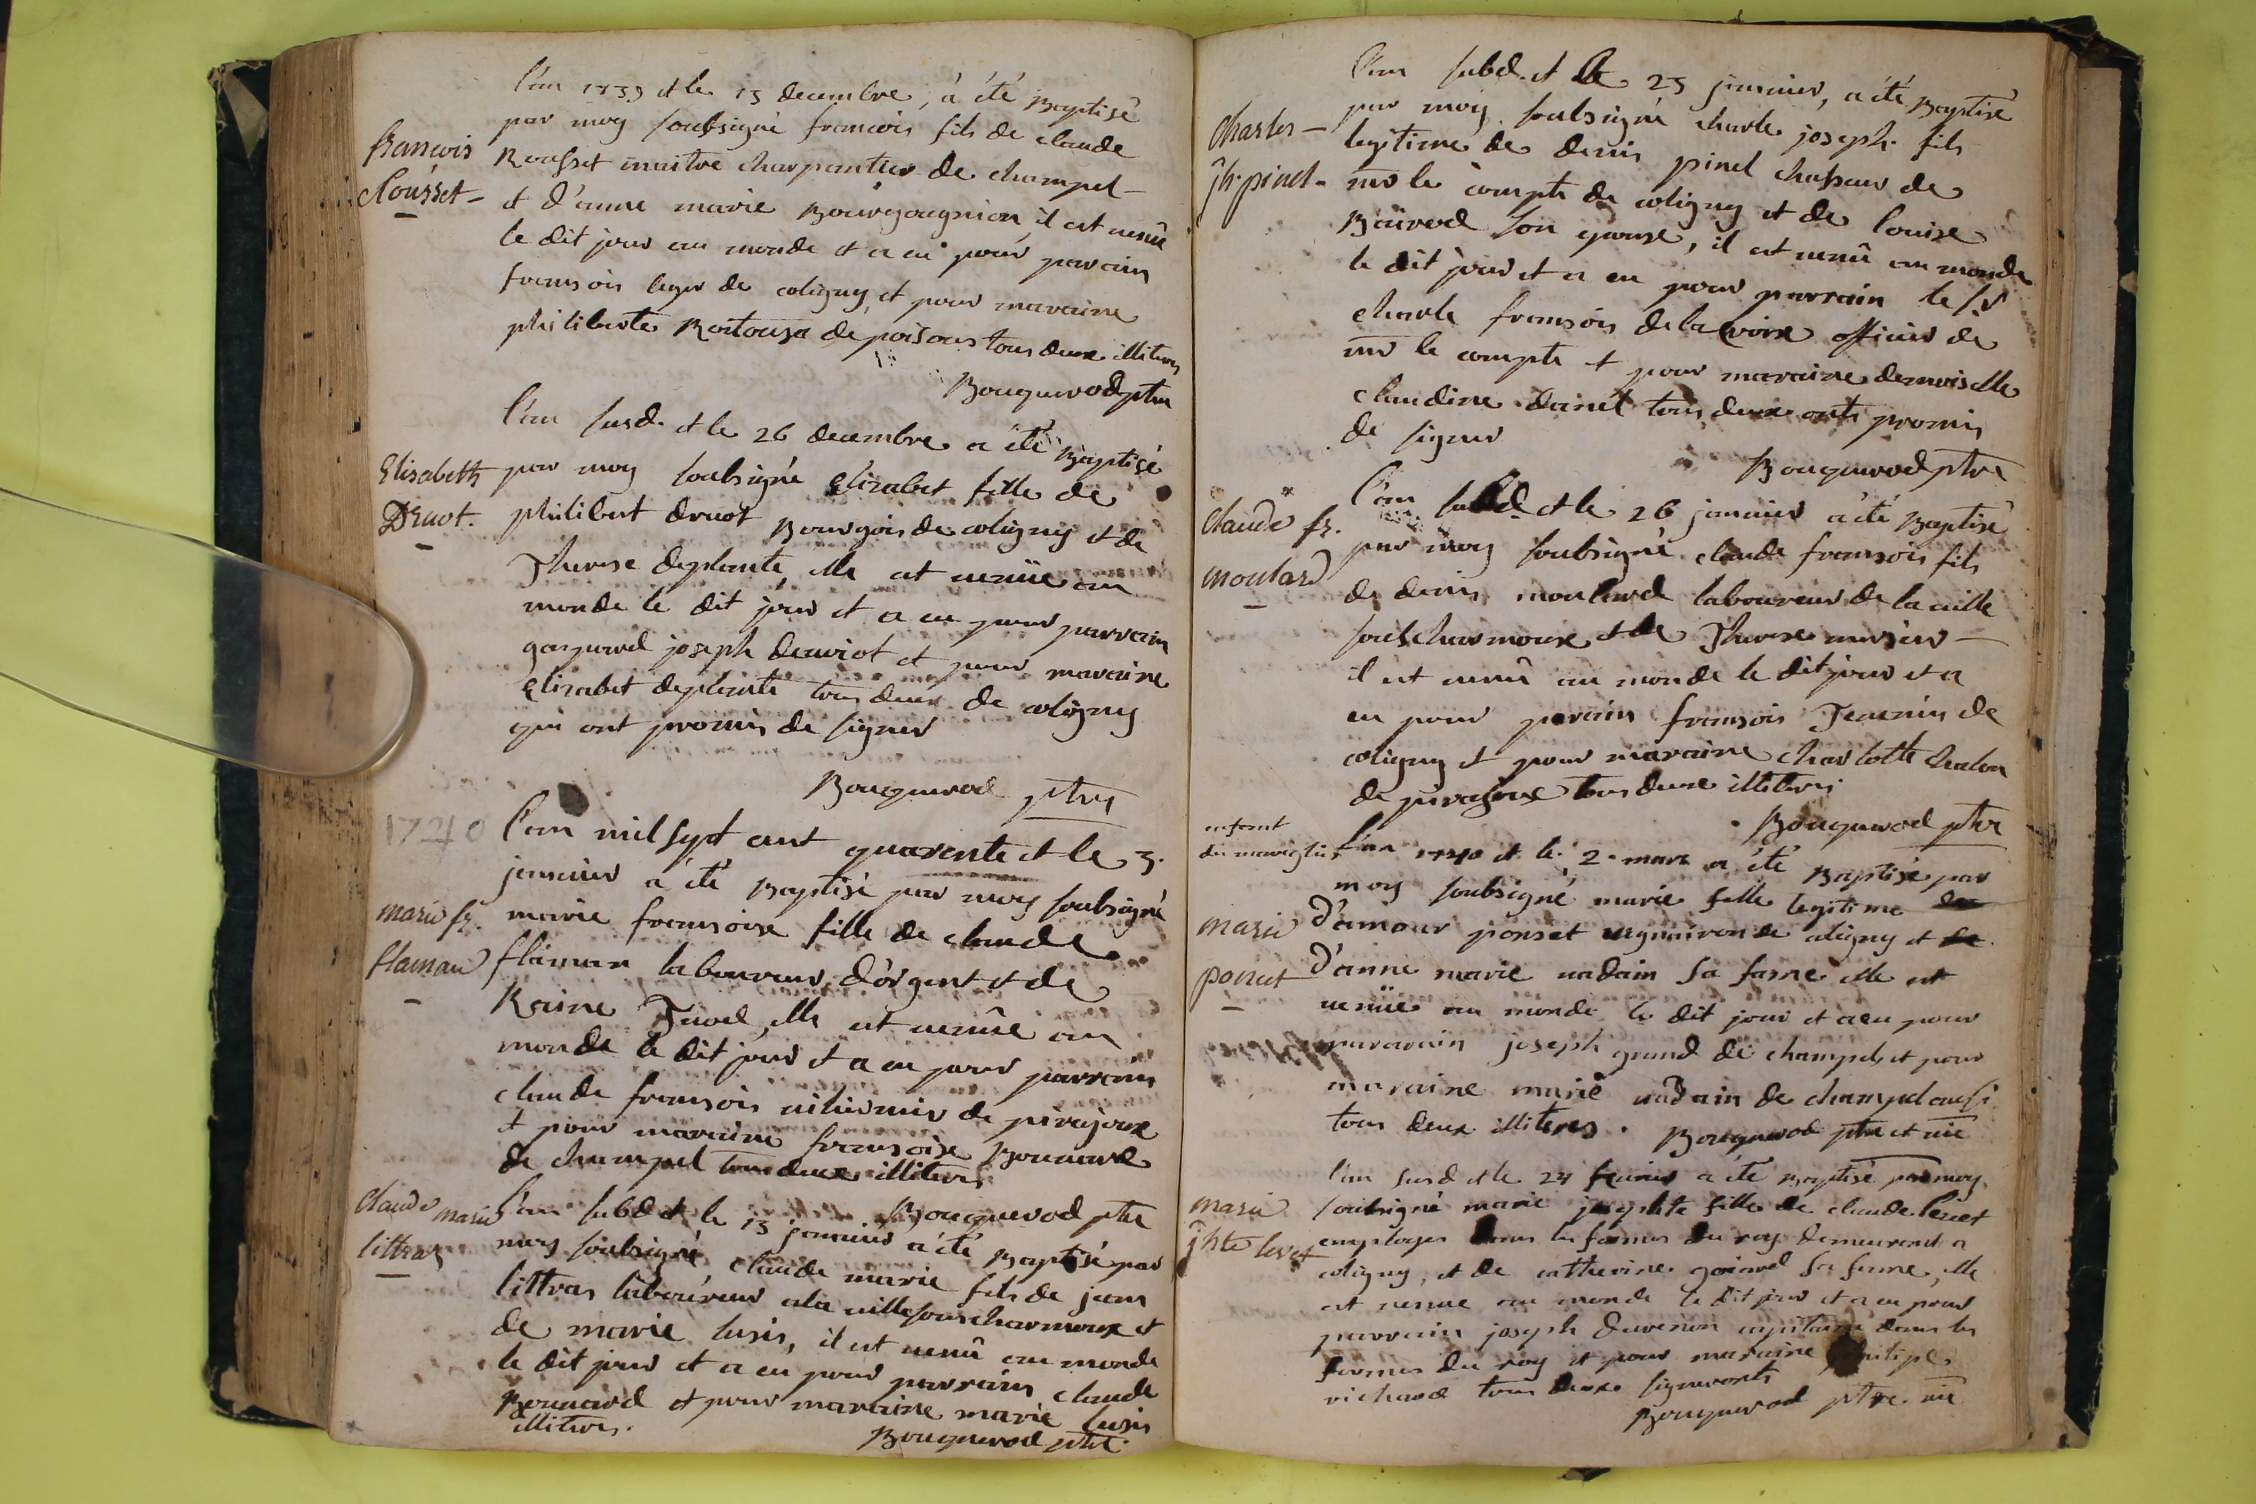 L'an 1739 et le 13 decembre, à été Baptisé
par moy soubsigné francois fils de claude
francois
Rousset maitre charpantier de champel
clousset
et d'anne marie Bourgougnion, il est venû
le dit jour au monde et a eu pour parain
fransois leger de coligny, et pour maraine
philiberte de poisous tous deux illiteres
Bouquerod ptre
L'an susd. et le 26 decembre a été Baptisé
Elisabeth
par moy soubsigné Elizabet fille de
Druot.
philibert druot Bourgois de coligny et de
Therese deplante, elle est venüe au
monde le dit jour et a eu pour parrain
gaspard joseph et pour maraine
Elizabet deplante tous deux de coligny
qui ont promis de signer
Bouquerod ptre
1740
L'an mil sept cent quarente et le 3.
janvier a été Baptisé par moy soubsigné
marie fr.
marie fransoise fille de claude
flaman
flaman laboureur d'orgent et de
Raine Juvel, elle est venûe au
monde le dit jour et a eu pour parrain
claude fransois de pirajoux
et pour maraine fransoise Bouvard
de champel tous deux illiteres
Bouquerod ptre
claude marie
L'an subd et le 13 janvier a été Baptisé par
littras
moy soubsigné claude marie fils de jean
littras laboureur a la ville sous charmoux et
de marie lusis, il est venû au monde
le dit jour et a eu pour parrain claude
Bouvard et pour maraine marie lusis
illiteres.
Bouquerod ptre
L'an subd. et le 23 janvier, a été Baptisé
charles
par moy soubsigné charle joseph fils
jh. pinel
legitime de denis pinel chasseur de
mr le compte de coligny et de louise
son epouse, il est venû au monde
le dit jour et a eu pour parrain le sr
charle fransois de la croix officier de
mr le compte et pour maraine demoiselle
claudine danel tous deux onts promis
de signer
Bouquerod ptre
L'an subd. et le 26 janvier a été Baptisé
claude fr.
par moy soubsigné claude fransois fils
moulard
de denis moulard laboureur de la ville
sous charmoux et de Therese mercier
il est venû au monde le dit jour et a
eu pour parain fransois Jeannin de
coligny et pour maraine charlotte chalon
de pirajoux tous deux illiteres
Bouquerod ptre
enfant
L'an 1740 et le 2. mars a été Baptisé par
moy soubsigné marie fille legitime
marie
D'amour ponset vigniron de coligny et de
ponset
D'anne marie vadain sa fame elle est
venüe au monde le dit jour et a eu pour
pararain joseph grand de champel et pour
maraine marie vadain de champel aussi
tous deux illiteres. Bouquerod ptre et vic
L'an susd et le 24 fevrier a été Baptisé par moy
marie
soubsigné marie josephte fille de claude levet
jhte levet
employer dans les fermes du roy demeurant a
coligny, et de catherine goinard sa fame, elle
est venue au monde le dit jour et a eu pour
parrain joseph duvernon capitaine dans les
fermes du roy et pour maraine
richard tous deux signeronts
Bouquerod ptre. vic